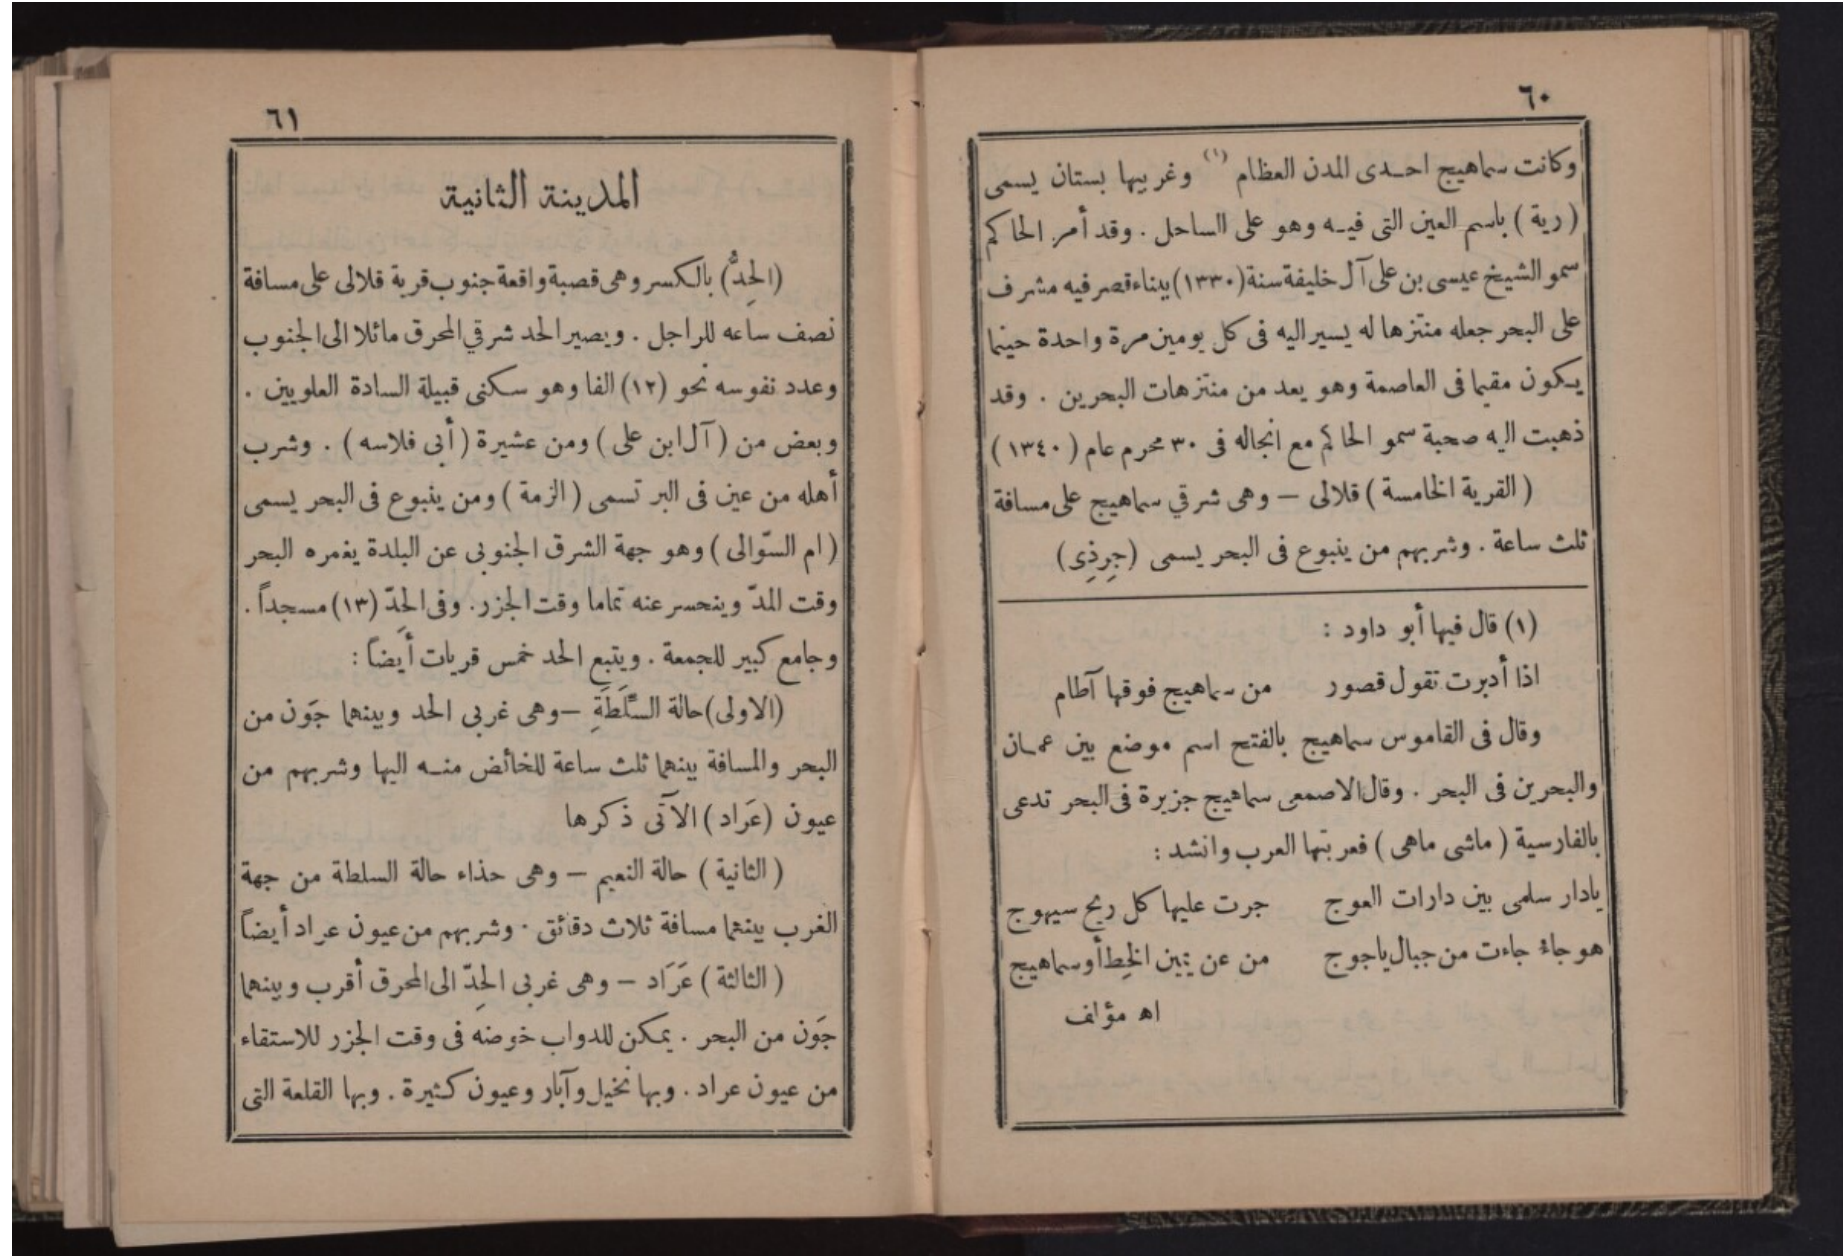 ٦٠
وكانت سماهيج احدى المدن العظام (١) وغربيها بستان يسمى
( رية ) باسم العين التى فيه وهو على الساحل . وقد أمر الحاكم
سمو الشيخ عيسى بن على آل خليفة سنة (١٣٣٠) ببناء قصر فيه مشرف
على البحر جعله منتزها له يسير اليه فى كل يومين مرة واحدة حينما
يكون مقيما فى العاصمة وهو يعد من منتزهات البحرين . وقد
ذهبت اليه صحبة سمو الحاكم مع انجاله فى ٣٠ محرم عام ( ١٣٤٠ )
( القرية الخامسة ) قلالى — وهى شرقي سماهيج على مسافة
ثلث ساعة . وشربهم من ينبوع فى البحر يسمى ( جِرذِى )
(١) قال فيها أبو داود :
اذا أدبرت تقول قصور من سماهيج فوقها آطام
وقال فى القاموس سماهيج بالفتح اسم موضع بين عمان
والبحرين فى البحر . وقال الاصمعى سماهيج جزيرة فى البحر تدعى
بالفارسية ( ماشى ماهى ) فعربتها العرب وانشد :
يادار سلمى بين دارات العوج جرت عليها كل ريح سيهوج
هوجاء جاءت من جبال ياجوج من عن يمين الخِط أو سماهيج
اه مؤلف
٦١
المدينة الثانية
(الحِدُّ) بالكسر وهى قصبة واقعة جنوب قرية قلالى على مسافة
نصف ساعه للراجل . ويصير الحد شرقي المحرق مائلا الى الجنوب
وعدد نفوسه نحو (١٢) الفا وهو سكنى قبيلة السادة العلويين .
وبعض من ( آل ابن على ) ومن عشيرة ( أبى فلاسه ) . وشرب
أهله من عين فى البر تسمى ( الزمة ) ومن ينبوع فى البحر يسمى
( ام السّوالى ) وهو جهة الشرق الجنوبى عن البلدة يغمره البحر
وقت المدّ وينحسر عنه تماما وقت الجزر. وفى الحِدّ (١٣) مسجداً .
وجامع كبير للجمعة . ويتبع الحد خمس قريات أيضاً :
(الاولى) حالة السَّلَطَةِ — وهى غربى الحد وبينهما جَون من
البحر والمسافة بينهما ثلث ساعة للخائض منه اليها وشربهم من
عيون (عَراد) الآتى ذكرها
( الثانية ) حالة النعيم — وهى حذاء حالة السلطة من جهة
الغرب بينهما مسافة ثلاث دقائق . وشربهم من عيون عراد أيضاً
( الثالثة ) عَرَاد — وهى غربى الحِدّ الى المحرق أقرب وبينهما
جَون من البحر . يمكن للدواب خوضه فى وقت الجزر للاستقاء
من عيون عراد . وبها نخيل وآبار وعيون كثيرة . وبها القلعة التى